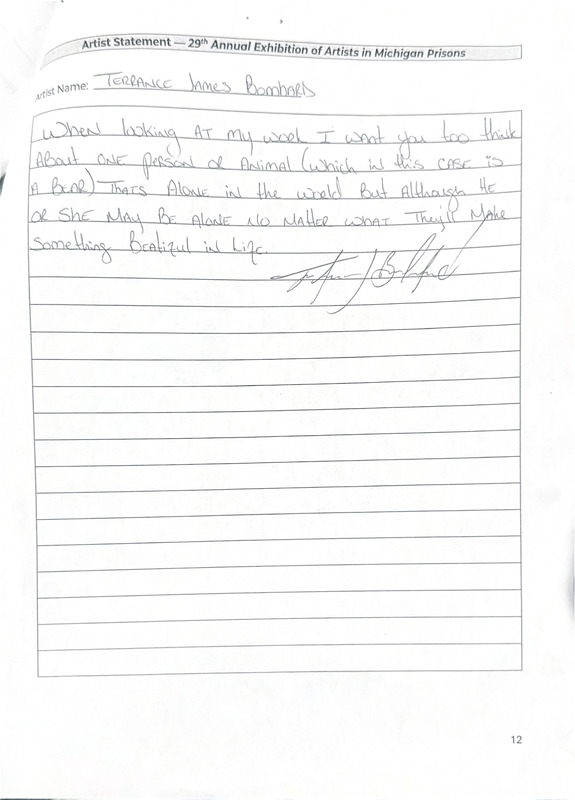 Artist Statement — 29th Annual Exhibition of Artists in Michigan Prisons
Artist Name: TERRANCE James Bomhard
When looking AT my work I want you too think
About ONE person or Animal (which in this case is
A BEAR) Thats Alone in the world But Although HE
or SHE May Be Alone No Matter what They'll Make
Something Beatiful in Life.
12